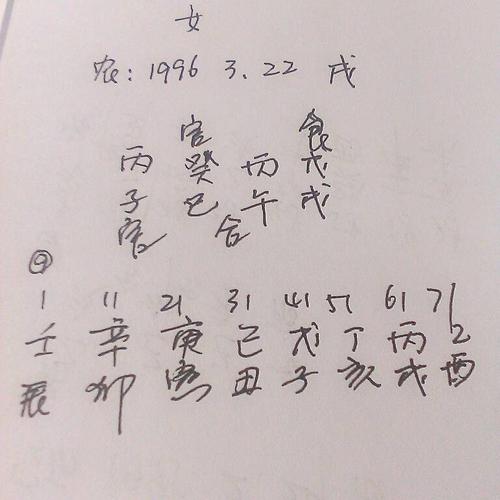 女
农: 1996 3. 22 戌
官 食
丙 癸 丙 戊
子 巳 午 戌
官 合
1 11 21 31 41 51 61 71
壬 辛 庚 己 戊 丁 丙 乙
辰 卯 寅 丑 子 亥 戌 酉